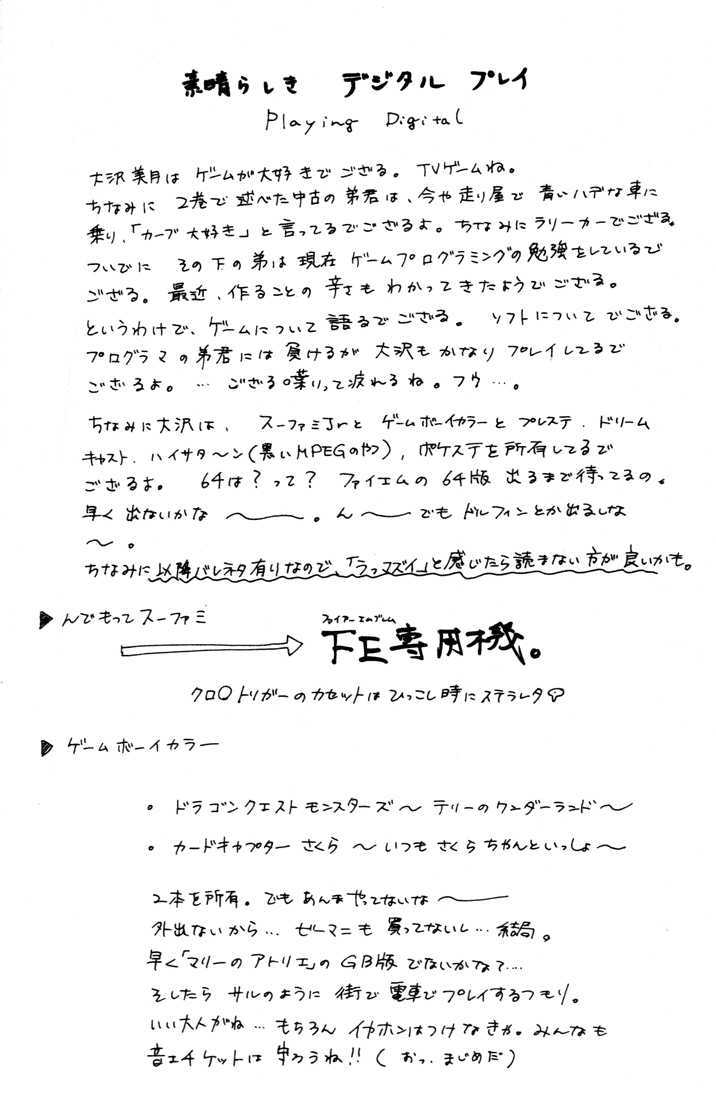 素晴らしき デジタル プレイ
Playing Digital
大沢美月は ゲームが大好きでござる。TVゲームね。
ちなみに 2巻で述べた中古の弟君は、今や走り屋で 青いハデな車に
乗り、「カーブ大好き」と言ってるでござるよ。ちなみにラリーカーでござる。
ついでに その下の弟は現在 ゲームプログラミングの勉強をしているで
ござる。最近、作ることの辛さも わかってきたようでござる。
というわけで、ゲームについて語るでござる。 ソフトについて でござる。
プログラマの弟君には負けるが 大沢もかなり プレイしてるで
ござるよ。… ござる喋りって疲れるね。フウ…。
ちなみに大沢は、 スーファミJrと ゲームボーイカラーと プレステ、ドリーム
キャスト、ハイサタ〜ン(黒いMPEGのやつ)、ポケステを所有してるで
ござるよ。 64は?って? ファイエムの 64版 出るまで待ってるの。
早く 出ないかな〜。ん〜でも ドルフィンとか出るしな
〜。
ちなみに以降バレネタ有りなので、「うっマズイ」と感じたら読まない方が良いかも。
▶んでもってスーファミ
ファイアーエムブレム
FE専用機。
クロ○トリガーのカセットは ひっこし時にステラレタ♡
▶ ゲームボーイカラー
・ ドラゴンクエスト モンスターズ 〜 テリーのワンダーランド〜
・ カードキャプター さくら 〜 いつも さくら ちゃんといっしょ〜
2本を所有。でも あんまやってないな〜
外出ないから… ビーマニも 買ってないし… 結局。
早く「マリーの アトリエ」の GB版 でないかな?…
そしたら サルのように 街で 電車でプレイするつもり。
いい大人がね… もちろん イヤホンはつけなきゃ。みんなも
音エチケットは 守ろうね!! ( おっ、まじめだ )